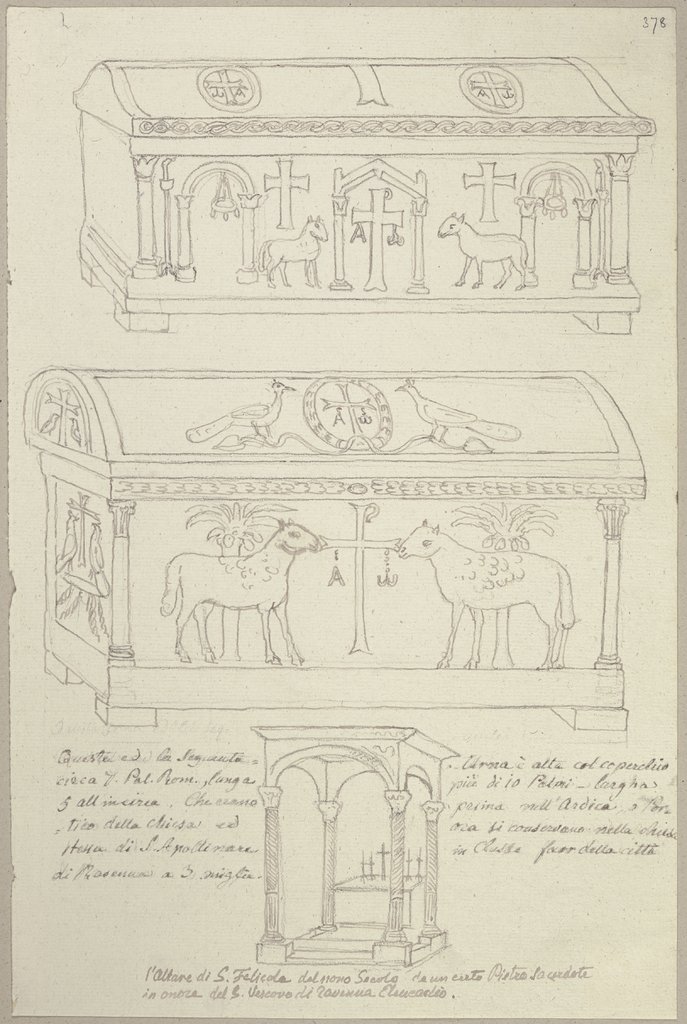 378
A ω
A ω
A ω
A ω
A ω
Questa ed la Seguente =
circa 7. Pal. Rom., lunga
5 all'incirca. Che erano
= tico della chiesa ed
stessa di S. Apollinare
di Ravenna a 3. miglia.
- Urna è alta col coperchio
più di 10 Palmi - larga
prima nell'Ardica, o Por=
ora si conservano nella chiesa
in Classe fuor della città
l'Altare di S. Felicola del nono Secolo da un certo Pietro Sacerdote
in onore del S. Vescovo di Ravenna Eleucadio.